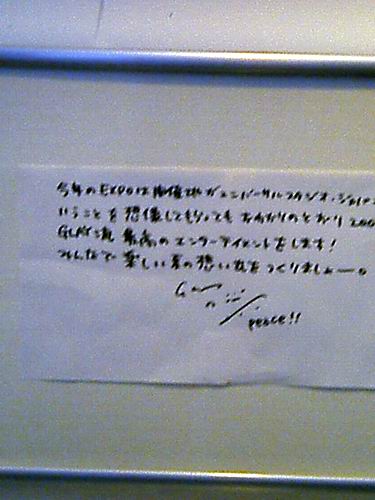 今年のEXPOは開催地がユニバーサルスタジオ・ジャパンと
いうことを想像してもらってもおわかりのとおり200
GLAY流 最高のエンターテイメントをします!
みんなで楽しい夏の想い出をつくりましょー。
peace!!